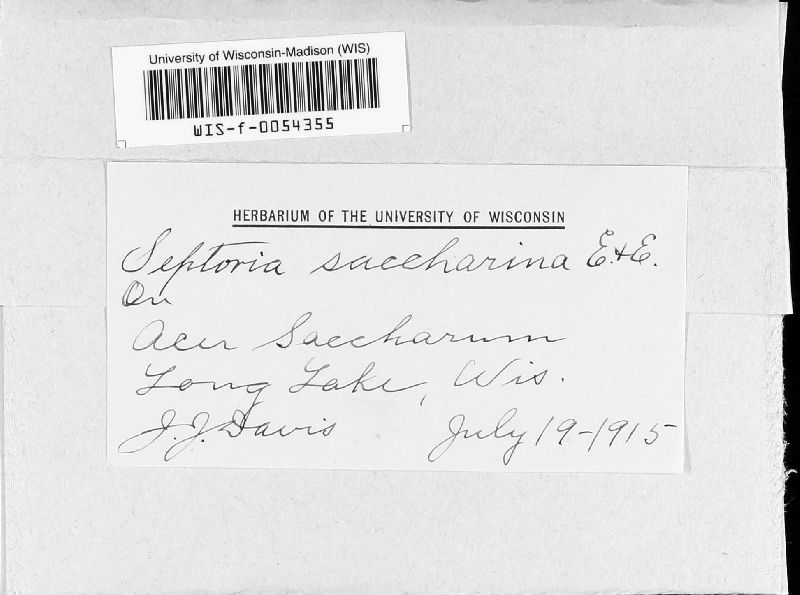 University of Wisconsin-Madison (WIS)
WIS-f-0054355
HERBARIUM OF THE UNIVERSITY OF WISCONSIN
Septoria saccharina E.&E.
On
Acer Saccharum
Long Lake, Wis.
J.J. Davis July 19-1915